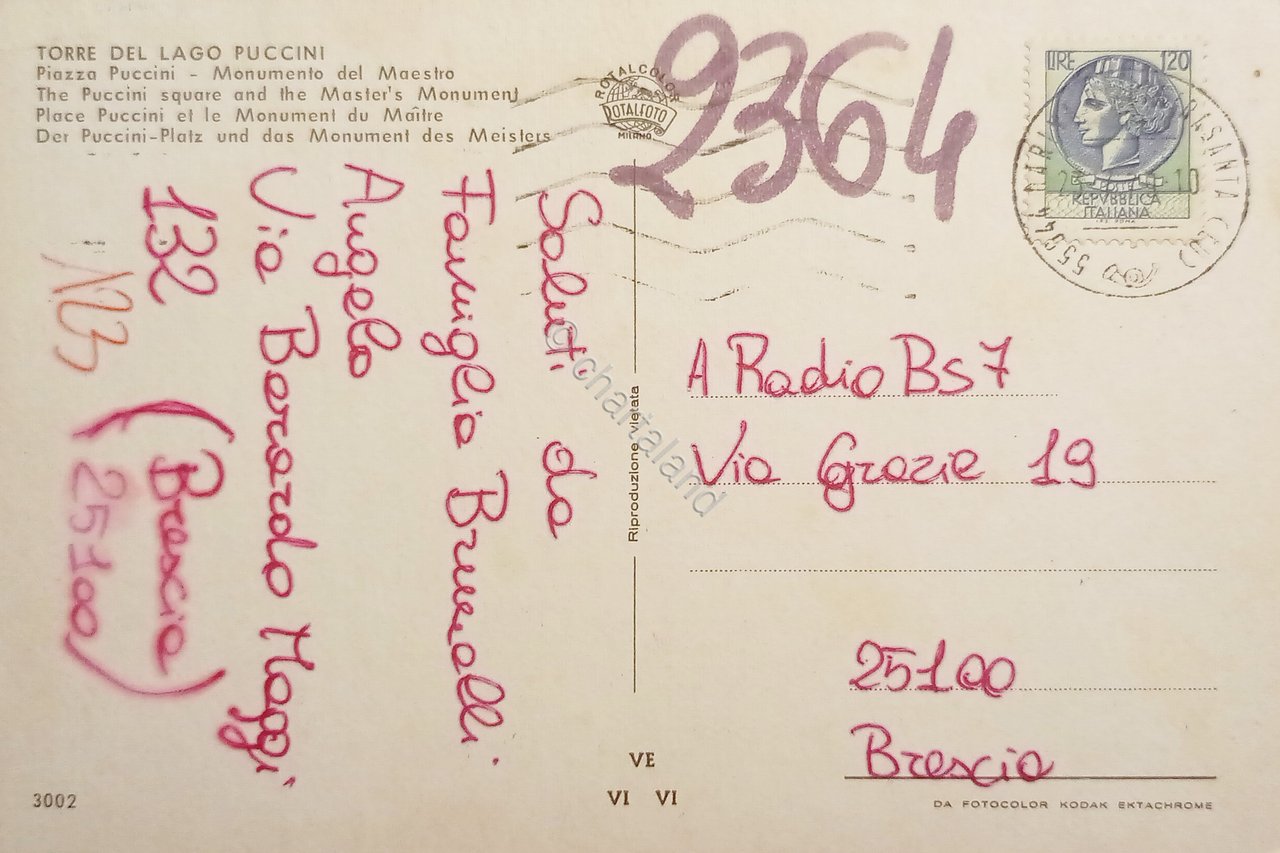 TORRE DEL LAGO PUCCINI
Piazza Puccini - Monumento del Maestro
The Puccini square and the Master's Monument
Place Puccini et le Monument du Maître
Der Puccini-Platz und das Monument des Meisters
ROTALCOLOR
ROTALFOTO
MILANO
2364
LIRE 120
REPVBBLICA
ITALIANA
Saluti da
Famiglia Brunelli
Angelo
Via Berardo Maggi
132 (Brescia)
N23 25100)
© chartaland
Riproduzione vietata
A Radio Bs7
Via Grazie 19
25100
Brescia
VE
VI VI
3002
DA FOTOCOLOR KODAK EKTACHROME